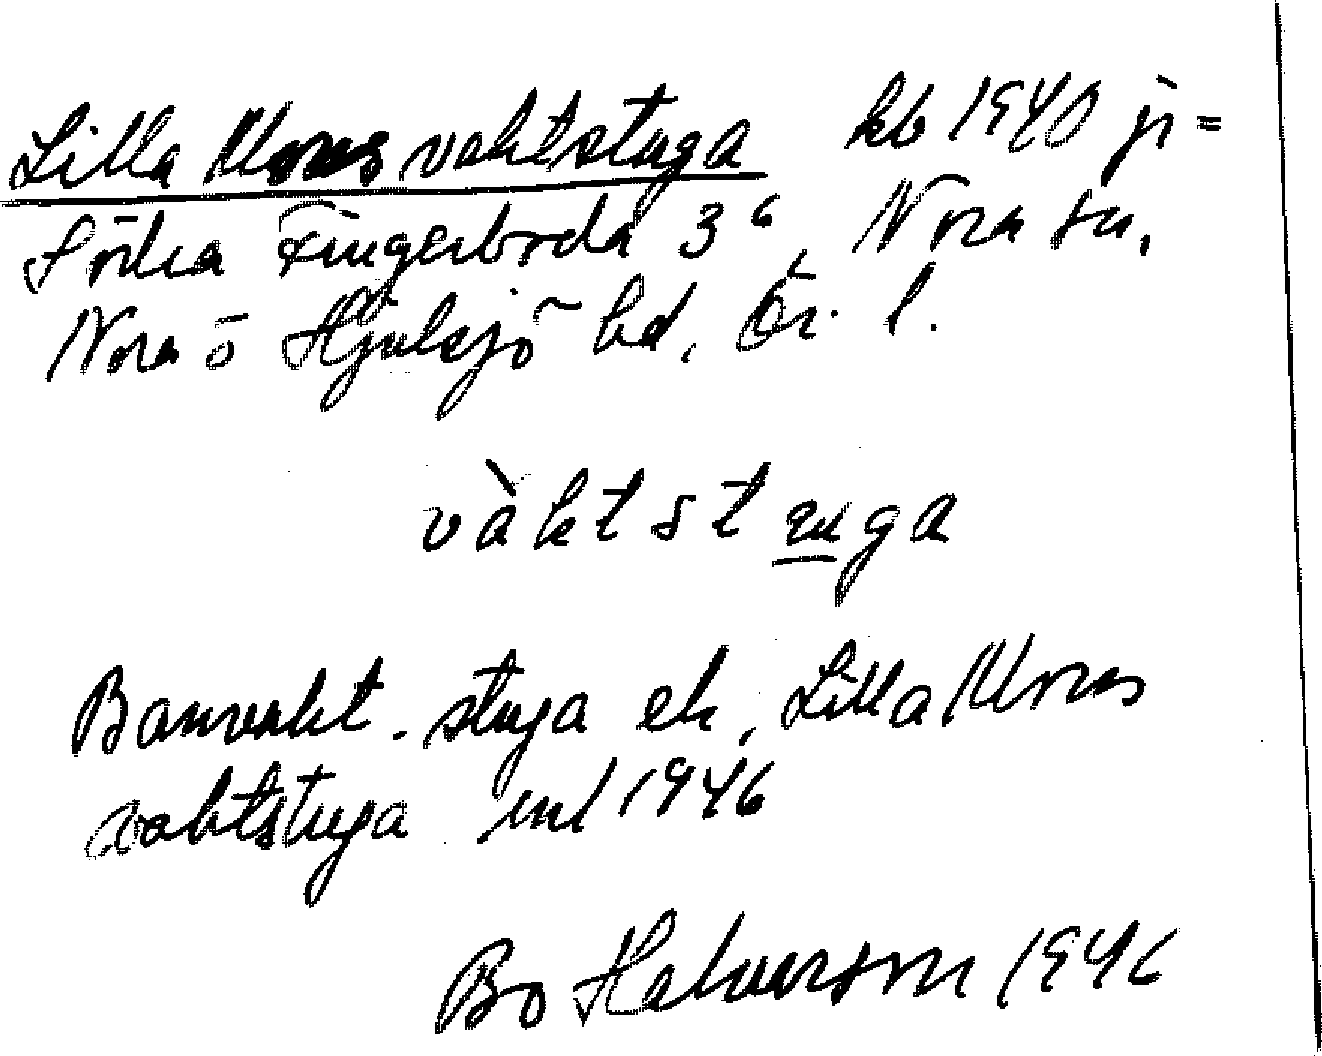 Lilla Mores vaktstuga kb 1940 ji =
Södra Fingerboda 3⁶, Nora sn,
Nora ō Hjulsjö bd, Ör. l.
vàktstuga
Banvakt. stuga ek, Lilla Mores
vaktstuga enl 1946
Bo Halvarson 1946